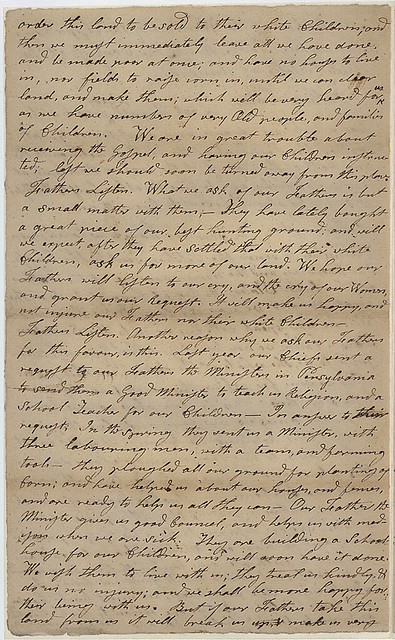 order this land to be sold to their white Children, and
then we must immediately leave all we have done,
and be made poor at once; and have no house to live
in, nor fields to raise corn in, until we can clear
land, and make them; which will be very heard for us
as we have numbers of very Old people, and families
of Children. We are in great trouble about
receiving the Gospel, and having our Children instruc-
ted; lest we should soon be turned away from this place
Fathers Listen. What we ask of our Fathers is but
a small matter with them,— They have lately bought
a great piece of our best hunting ground; and will
we expect, after they have settled that with their white
Children, ask us for more of our land. We hope our
Fathers will listen to our cry, and the cry of our Women,
and grant us our Request. It will make us happy, and
not injure our Fathers nor their white Children—
Fathers Listen. Another reason why we ask our Fathers
for this favour, is this. Last year our Chiefs sent a
request to our Fathers the Ministers in Pensylvania
to send them a Good Minister to teach us Religion, and a
School Teacher for our Children— In answer to their
request, In the spring they sent us a Minister, with
three labouring men, with a team, and farming
tools— they ploughed all our ground for planting of
Corn; and have helped us about our houses, and fences,
and are ready to help us all they can— Our Father the
Minister gives us good Council, and helps us with med
when we are sick. They are building a School
house for our Children, and will soon have it done.
We wish them to live with us; They treat us kindly, &
do us no injury; and we shall be more happy for
their being with us. But if our Fathers take this
land from us it will break us up & make us very